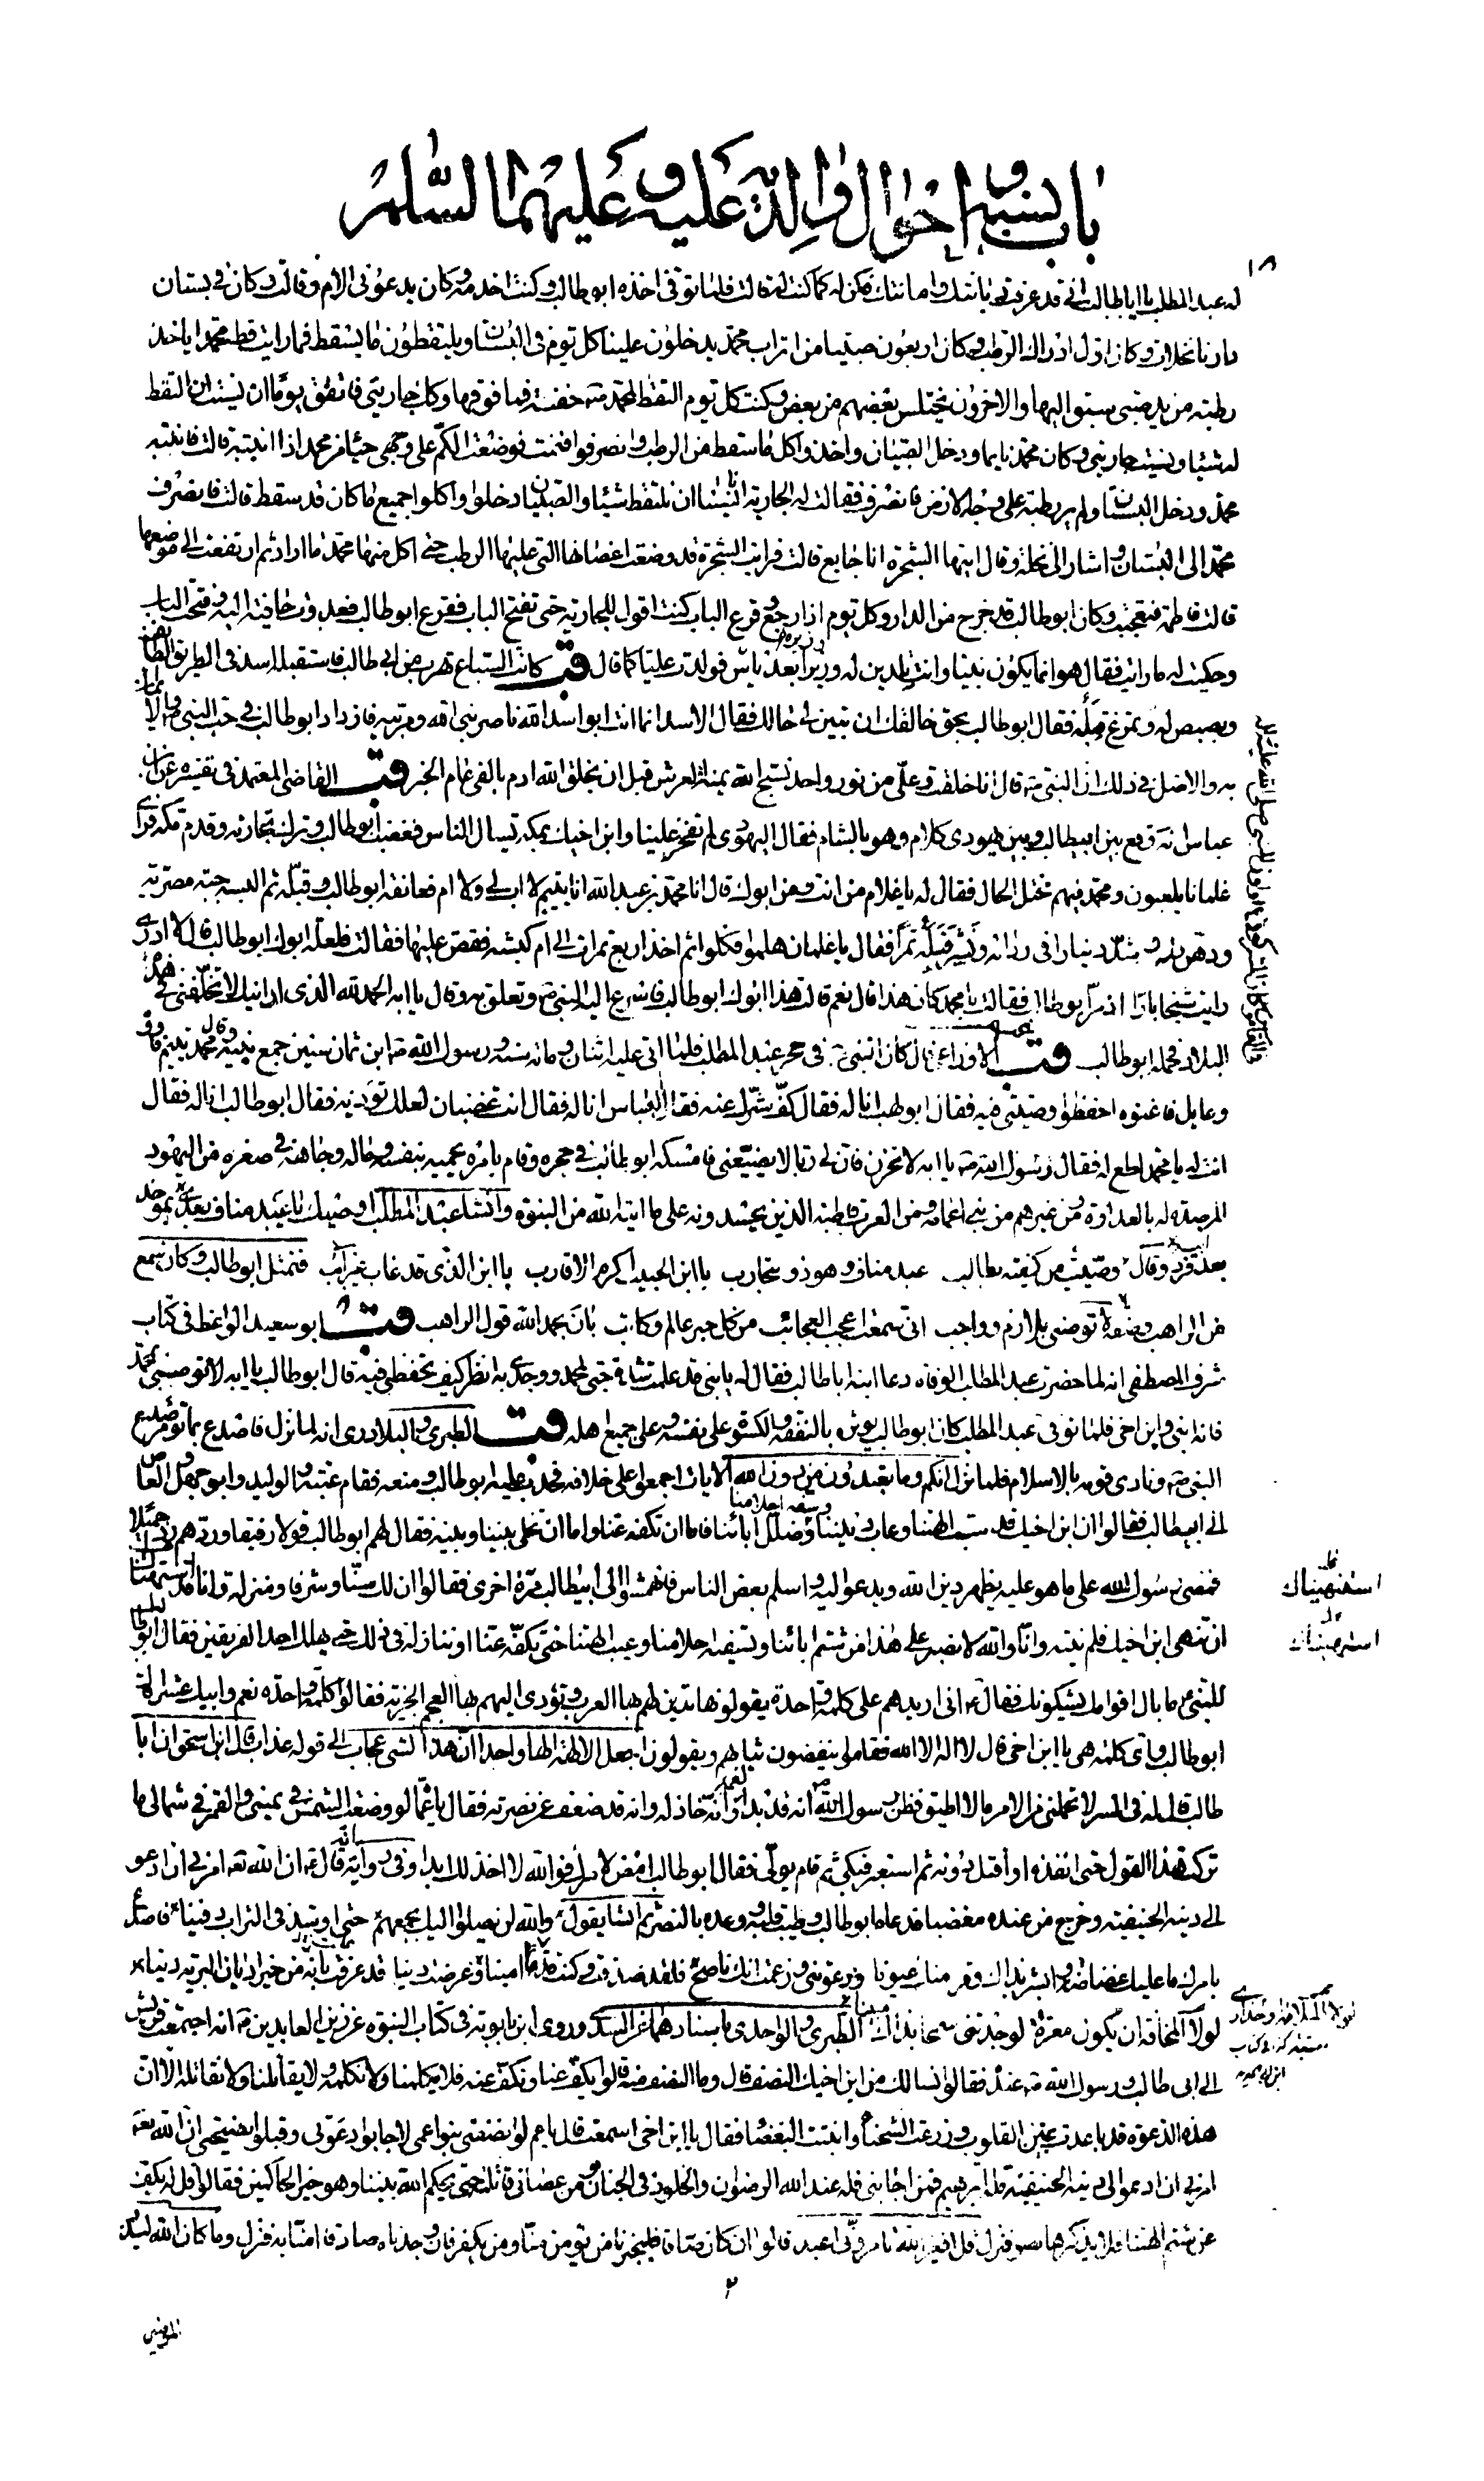 باب نسبه و احوال والديه عليه و عليهما السلم
١٨
له عبد المطلب يا ابا طالب اني قد عرفت ديانتك وامانتك فكن له كما كنت له قالت فلما توفي اخذه ابو طالب وكنت اخدمه وكان يدعوني الام وقالت وكان في بستان
دارنا نخلات وكان اول ادراك الرطب وكان اربعون صبيا من اتراب محمد يدخلون علينا كل يوم في البستان ويلتقطون ما يسقط فما رايت قط محمدا ياخذ
رطبة من يد صبي سبق اليها والاخرون يختلس بعضهم من بعض وكنت كل يوم التقط لمحمد ص حفنة فما فوقها وكذلك جاريتي فاتفق يوما ان نسيت ان التقط
له شيئا ونسيت جاريتي وكان محمد نايما ودخل الصبيان واخذوا كل ما سقط من الرطب وانصرفوا فنمت فوضعت الكم على وجهي حياء من محمد اذا انتبه قالت فانتبه
محمد ودخل البستان ولم ير رطبة على وجه الارض فانصرف فقالت له الجارية انا نسينا ان نلتقط شيئا والصبيان دخلوا واكلوا جميع ما كان قد سقط قالت فانصرف
محمد الى البستان واشار الى نخلة وقال ايتها الشجرة انا جايع قالت فرايت الشجرة قد وضعت اغصانها التي عليها الرطب حتى اكل منها محمد ما اراد ثم ارتفعت الى موضعها
قالت فاطمة فتعجبت وكان ابو طالب قد خرج من الدار وكل يوم اذا رجع وقرع الباب كنت اقول للجارية حتى تفتح الباب فقرع ابو طالب فعدوت حافية اليه وفتحت الباب
وحكيت له ما رايت فقال هو انما يكون نبيا وانت تلدين له وزيرا بعد ياس فولدت عليا كما قال قب كانت السباع تهرب من ابي طالب فاستقبله اسد في الطريق الطائف
وبصبص له وتمرغ قبله فقال ابو طالب بحق خالقك ان تبين لي حالك فقال الاسد انما انت ابو اسد الله ناصر نبي الله ومربيه فازداد ابو طالب في حب النبي ص والايمان
به والاصل في ذلك ان النبي ص قال انا خلقت وعلي من نور واحد نسبح الله يمنة العرش قبل ان يخلق الله ادم بالفي عام الخبر قب القاضي المعتمد في تفسيره عن ابن
عباس انه وقع بين ابيطالب وبين يهودي كلام وهو بالشام فقال اليهودي لم تفخر علينا وابن اخيك بمكة يسال الناس فغضب ابو طالب وترك تجارته وقدم مكة فراى
غلمانا يلعبون ومحمد فيهم مختل الحال فقال له يا غلام من انت ومن ابوك قال انا محمد بن عبد الله انا يتيم لا اب لي ولا ام فعانقه ابو طالب وقبله ثم البسه جبة مصرية
ودهن راسه وشد دينارا في ردائه ونشر قبله تمرا فقال يا غلمان هلموا فكلوا ثم اخذ اربع تمرات الى ام كبشة فقص عليها فقالت فلعله ابوك ابو طالب قال لا ادري
رايت شيخا بارا اذ مر ابو طالب فقالت يا محمد كان هذا قال نعم قالت هذا ابوك ابو طالب فاسرع اليه النبي ص وتعلق به وقال يا ابه الحمد لله الذي ارانيك لا تخلفني في هذه
البلاد فحمله ابو طالب قب الاوزاعي قال كان النبي ص في حجر عبد المطلب فلما اتى عليه اثنان ومائة سنة ورسول الله ص ابن ثمان سنين جمع بنيه وقال محمد يتيم فاووه
وعايل فاغنوه احفظوا وصيتي فيه فقال ابو لهب انا له فقال كف شرك عنه فقال العباس انا له فقال انت غضبان لعلك تؤذيه فقال ابو طالب انا له فقال
انت له يا محمد اطع له فقال رسول الله ص يا ابه لا تحزن فان لي ربا لا يضيعني فامسكه ابو طالب في حجره وقام بامره يحميه بنفسه وماله وجاهه في صغره من اليهود
المرصدة له بالعداوة ومن غيرهم من بني اعمامه ومن العرب قاطبة الذين يحسدونه على ما اتاه الله من النبوة وانشا عبد المطلب اوصيك يا عبد مناف بعدي بموحد
بعد ابيه فرد وقال وصيت من كنيته بطالب عبد مناف وهو ذو تجارب يا ابن الحبيب اكرم الاقارب يا ابن الذي قد غاب غير آئب فتمثل ابو طالب وكان سمع
من الراهب وصفه لا توصني بلازم وواجب اني سمعت اعجب العجائب من كل حبر عالم وكاتب بان بحمد الله قول الراهب قب ابو سعيد الواعظ في كتاب
شرف المصطفى انه لما حضرت عبد المطلب الوفاة دعا ابنه ابا طالب فقال له يا بني قد علمت شدة حبي لمحمد ووجدي به انظر كيف تحفظني فيه قال ابو طالب يا ابه لا توصيني بمحمد
فانه ابني وابن اخي فلما توفي عبد المطلب كان ابو طالب يؤثره بالنفقة والكسوة على نفسه وعلى جميع اهله قب الطبري والبلاذري انه لما نزل فاصدع بما تؤمر صدع
النبي ص ونادى قومه بالاسلام فلما نزل انكم وما تعبدون من دون الله الايات اجمعوا على خلافه فحدب عليه ابو طالب ومنعه فقام عتبة والوليد وابو جهل والعاص
الى ابيطالب فقالوا ان ابن اخيك قد سب الهتنا وعاب ديننا وسفه احلامنا وضلل اباءنا فاما ان تكفه عنا واما ان تخلي بيننا وبينه فقال لهم ابو طالب قولا رفيقا وردهم ردا جميلا
فمضى رسول الله على ما هو عليه يظهر دين الله ويدعو اليه واسلم بعض الناس فانهمشوا الى ابيطالب مرة اخرى فقالوا ان لك سنا وشرفا ومنزلة وانا قد استنهيناك
ان تنهى ابن اخيك فلم ينته وانا والله لا نصبر على هذا من شتم ابائنا وتسفيه احلامنا وعيب الهتنا حتى تكفه عنا او ننازله في ذلك حتى يهلك احد الفريقين فقال ابو طالب
للنبي ص ما بال اقوامك يشكونك فقال ص اني اريدهم على كلمة واحدة يقولونها تدين لهم بها العرب وتؤدي اليهم بها العجم الجزية فقالوا كلمة واحدة نعم وابيك عشرا قال
ابو طالب واي كلمة هي يا ابن اخي قال لا اله الا الله فقاموا ينفضون ثيابهم ويقولون اجعل الالهة الها واحدا ان هذا لشئ عجاب الى قوله عذاب قال ابن اسحق ان ابا
طالب قال له في السر لا تحملني من الامر ما لا اطيق فظن رسول الله ص انه قد بدا لعمه وانه خاذله وانه قد ضعف عن نصرته فقال يا عماه لو وضعت الشمس في يميني والقمر في شمالي ما
تركت هذا القول حتى انفذه او اقتل دونه ثم استعبر فبكى ثم قام يولي فقال ابو طالب امض لامرك فوالله لا اخذلك ابدا وفي رواية انه قال ص ان الله تعه امرني ان ادعو
الى دينه الحنيفية وخرج من عنده مغضبا فدعاه ابو طالب وطيب قلبه ووعده بالنصر ثم انشا يقول والله لن يصلوا اليك بجمعهم حتى اوسد في التراب دفينا فاصدع
بامرك ما عليك غضاضة وابشر بذاك وقر منك عيونا ودعوتني وزعمت انك ناصح فلقد صدقت وكنت قدما امينا وعرضت دينا قد عرفت بانه من خير اديان البرية دينا
لولا المخافة ان يكون معرة لوجدتني سمحا بذاك مبينا الطبري والواحدي باسنادهما عن السدي وروى ابن بابويه في كتاب النبوة عن زين العابدين ع انه اجتمعت قريش
الى ابي طالب ورسول الله ص عنده فقالوا نسالك من ابن اخيك النصف قال وما النصف منه قالوا يكف عنا ونكف عنه فلا يكلمنا ولا نكلمه ولا يقاتلنا ولا نقاتله الا ان
هذه الدعوة قد باعدت بين القلوب وزرعت الشحناء وانبتت البغضاء فقال يا ابن اخي اسمعت قال يا عم لو انصفني بنو عمي لاجابوا دعوتي وقبلوا نصيحتي ان الله تعه
امرني ان ادعو الى دينه الحنيفية ملة ابرهيم فمن اجابني فله عند الله الرضوان والخلود في الجنان ومن عصاني قاتلته حتى يحكم الله بيننا وهو خير الحاكمين فقالوا قل له يكف
عن شتم الهتنا فلا يذكرها بسوء فنزل قل افغير الله تامروني اعبد قالوا ان كان صادقا فليخبرنا من يؤمن منا ومن يكفر فان وجدناه صادقا امنا به فنزل وما كان الله ليذر
المؤمنين
٢
استنهيناك